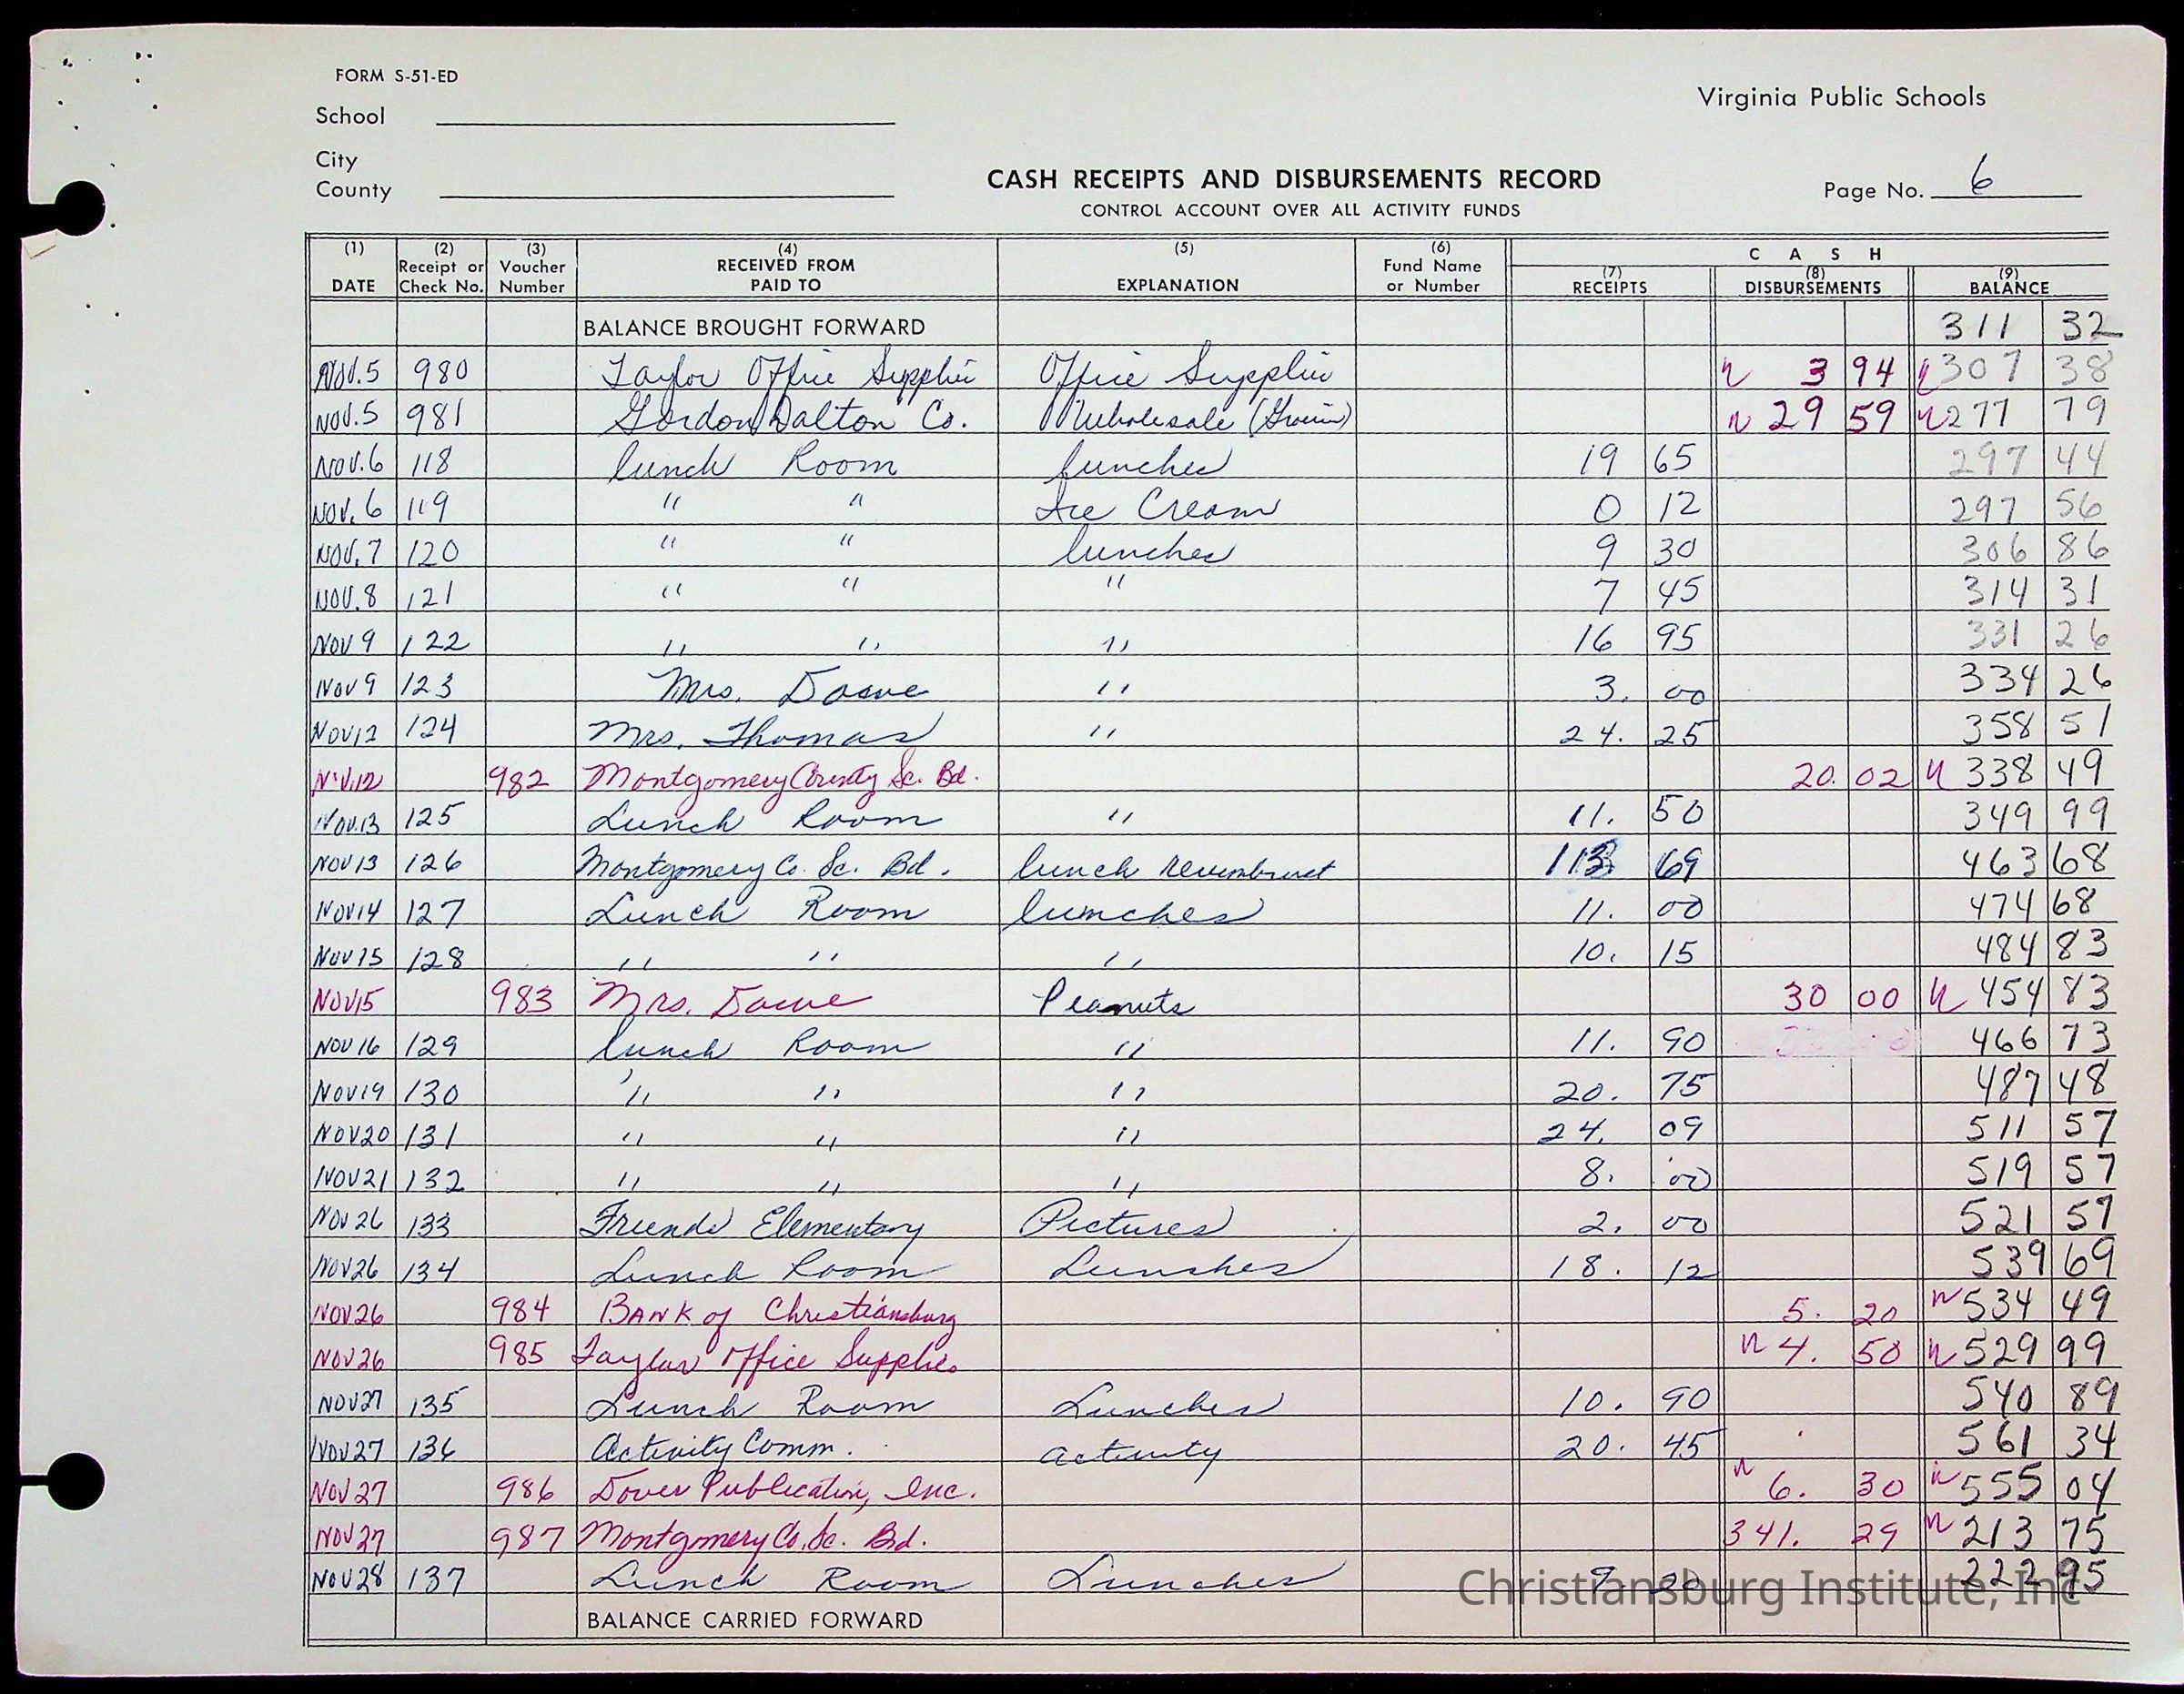 FORM S-51-ED
Virginia Public Schools
School
City
County
CASH RECEIPTS AND DISBURSEMENTS RECORD
CONTROL ACCOUNT OVER ALL ACTIVITY FUNDS
Page No. 6
(1) DATE (2) Receipt or Check No. (3) Voucher Number (4) RECEIVED FROM PAID TO (5) EXPLANATION (6) Fund Name or Number CASH (7) RECEIPTS (8) DISBURSEMENTS (9) BALANCE
BALANCE BROUGHT FORWARD 311 32
Nov. 5 980 Taylor Office Supplies Office Supplies 3 94 307 38
Nov. 5 981 Gordon Dalton Co. Wholesale 29 59 277 79
Nov. 6 118 lunch Room lunches 19 65 297 44
Nov. 6 119 " " Ice Cream 0 12 297 56
Nov. 7 120 " " lunches 9 30 306 86
Nov. 8 121 " " " 7 45 314 31
Nov 9 122 " " " 16 95 331 26
Nov 9 123 Mrs. " 3. 00 334 26
Nov 12 124 Mrs. Thomas " 24. 25 358 51
Nov. 12 982 Montgomery County Sc. Bd. 20. 02 338 49
Nov. 13 125 Lunch Room " 11. 50 349 99
Nov 13 126 Montgomery Co. Sc. Bd. lunch 113 69 463 68
Nov 14 127 Lunch Room lunches 11. 00 474 68
Nov 15 128 " " " 10. 15 484 83
Nov 15 983 Mrs. Peanuts 30 00 454 83
Nov 16 129 lunch Room " 11. 90 466 73
Nov 19 130 " " " 20. 75 487 48
Nov 20 131 " " " 24. 09 511 57
Nov 21 132 " " " 8. 00 519 57
Nov 26 133 Friends Elementary Pictures 2. 00 521 57
Nov 26 134 Lunch Room Lunches 18. 12 539 69
Nov 26 984 Bank of Christiansburg 5. 20 534 49
Nov 26 985 Taylor Office Supplies 4. 50 529 99
Nov 27 135 Lunch Room Lunches 10. 90 540 89
Nov 27 136 Activity Comm. activity 20. 45 561 34
Nov 27 986 Dover Publication, Inc. 6. 30 555 04
Nov 27 987 Montgomery Co. Sc. Bd. 341. 29 213 75
Nov 28 137 Lunch Room Lunches 9 20 222 95
BALANCE CARRIED FORWARD
Christiansburg Institute, Inc